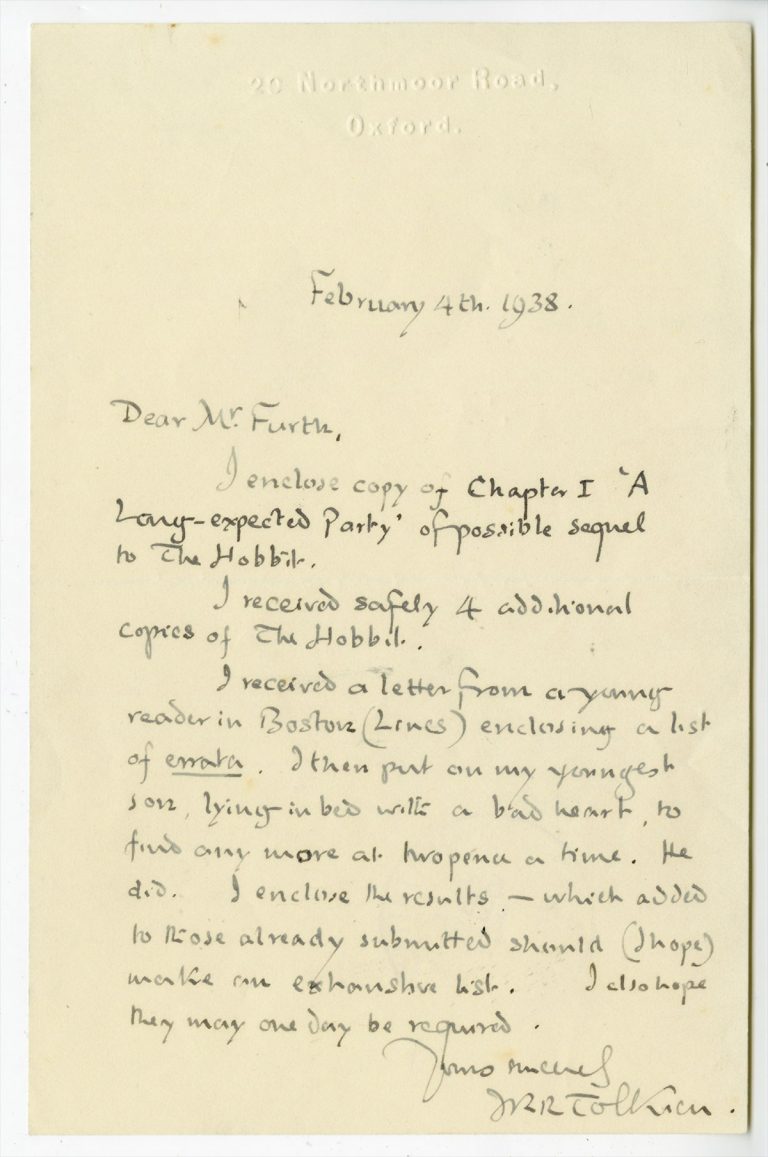 20 Northmoor Road,
Oxford.
February 4th. 1938.
Dear Mr. Furth,
I enclose copy of Chapter I 'A
Long-expected Party' of possible sequel
to The Hobbit.
I received safely 4 additional
copies of The Hobbit.
I received a letter from a young
reader in Boston (Lincs) enclosing a list
of errata. I then put on my youngest
son, lying in bed with a bad heart, to
find any more at twopence a time. He
did. I enclose the results – which added
to those already submitted should (I hope)
make an exhaustive list. I also hope
they may one day be required.
Yours sincerely
JRR Tolkien.